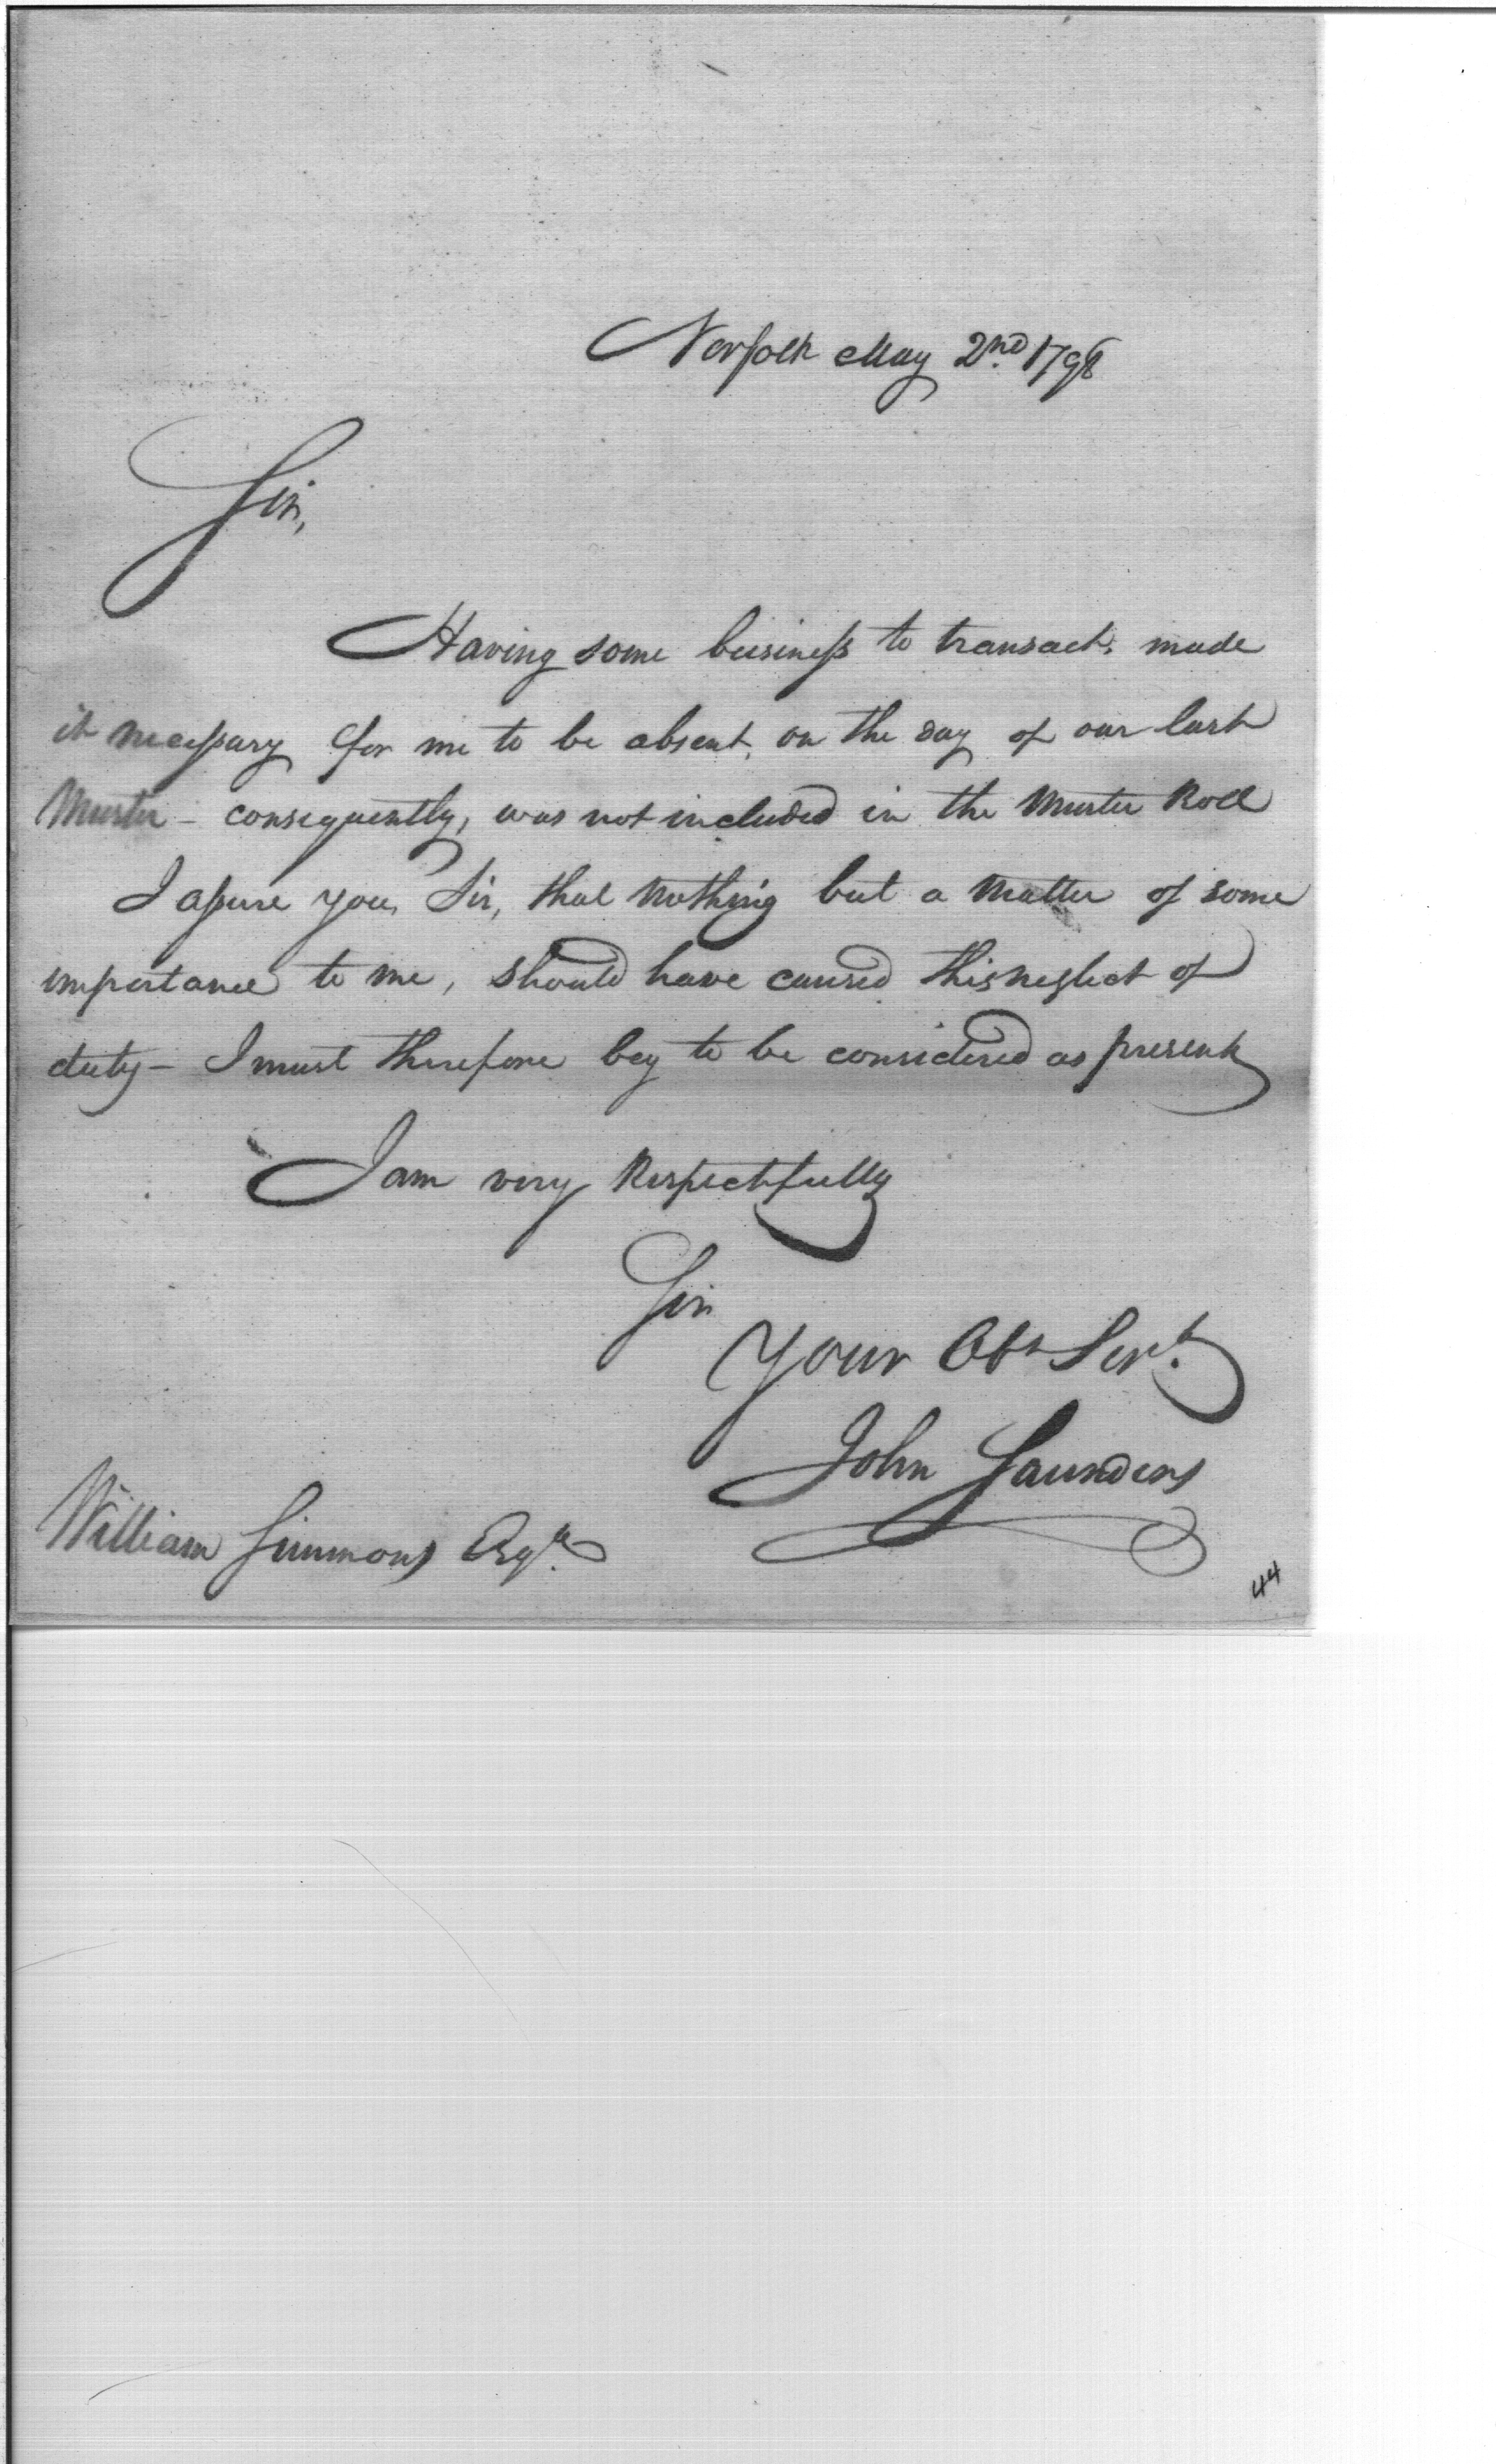 Norfolk May 2nd. 1798
Sir,
Having some business to transact, made
it necessary for me to be absent, on the day of our last
Muster - consequently, was not included in the Muster Roll
I assure you, Sir, that nothing but a Matter of some
importance to me, should have caused this neglect of
duty - I must therefore beg to be considered as present
I am very Respectfully
Sir
Your Obt Servt.
John Saunders
William Simmons Esqr.
44